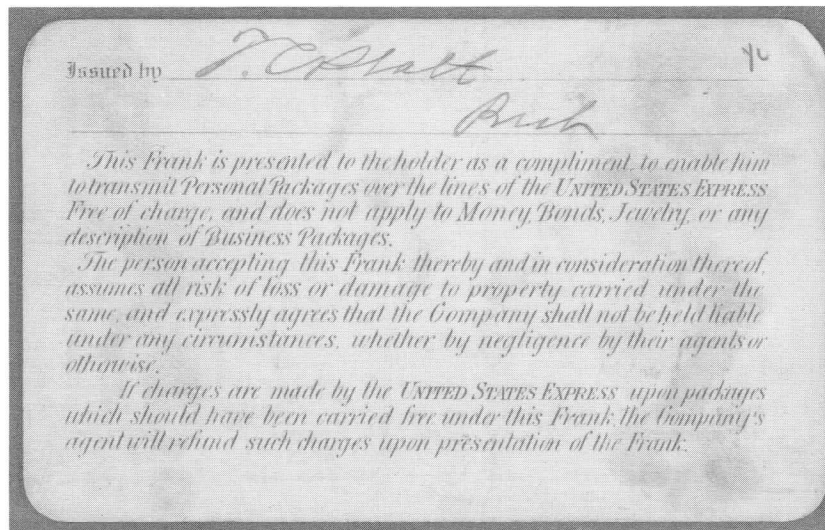 Issued by T. C. Platt
This Frank is presented to the holder as a compliment, to enable him
to transmit Personal Packages over the lines of the UNITED STATES EXPRESS
Free of charge, and does not apply to Money, Bonds, Jewelry, or any
description of Business Packages.
The person accepting this Frank thereby and in consideration thereof,
assumes all risk of loss or damage to property carried under the
same, and expressly agrees that the Company shall not be held liable
under any circumstances, whether by negligence by their agents or
otherwise.
If charges are made by the UNITED STATES EXPRESS upon packages
which should have been carried free under this Frank, the Company's
agent will refund such charges upon presentation of the Frank.